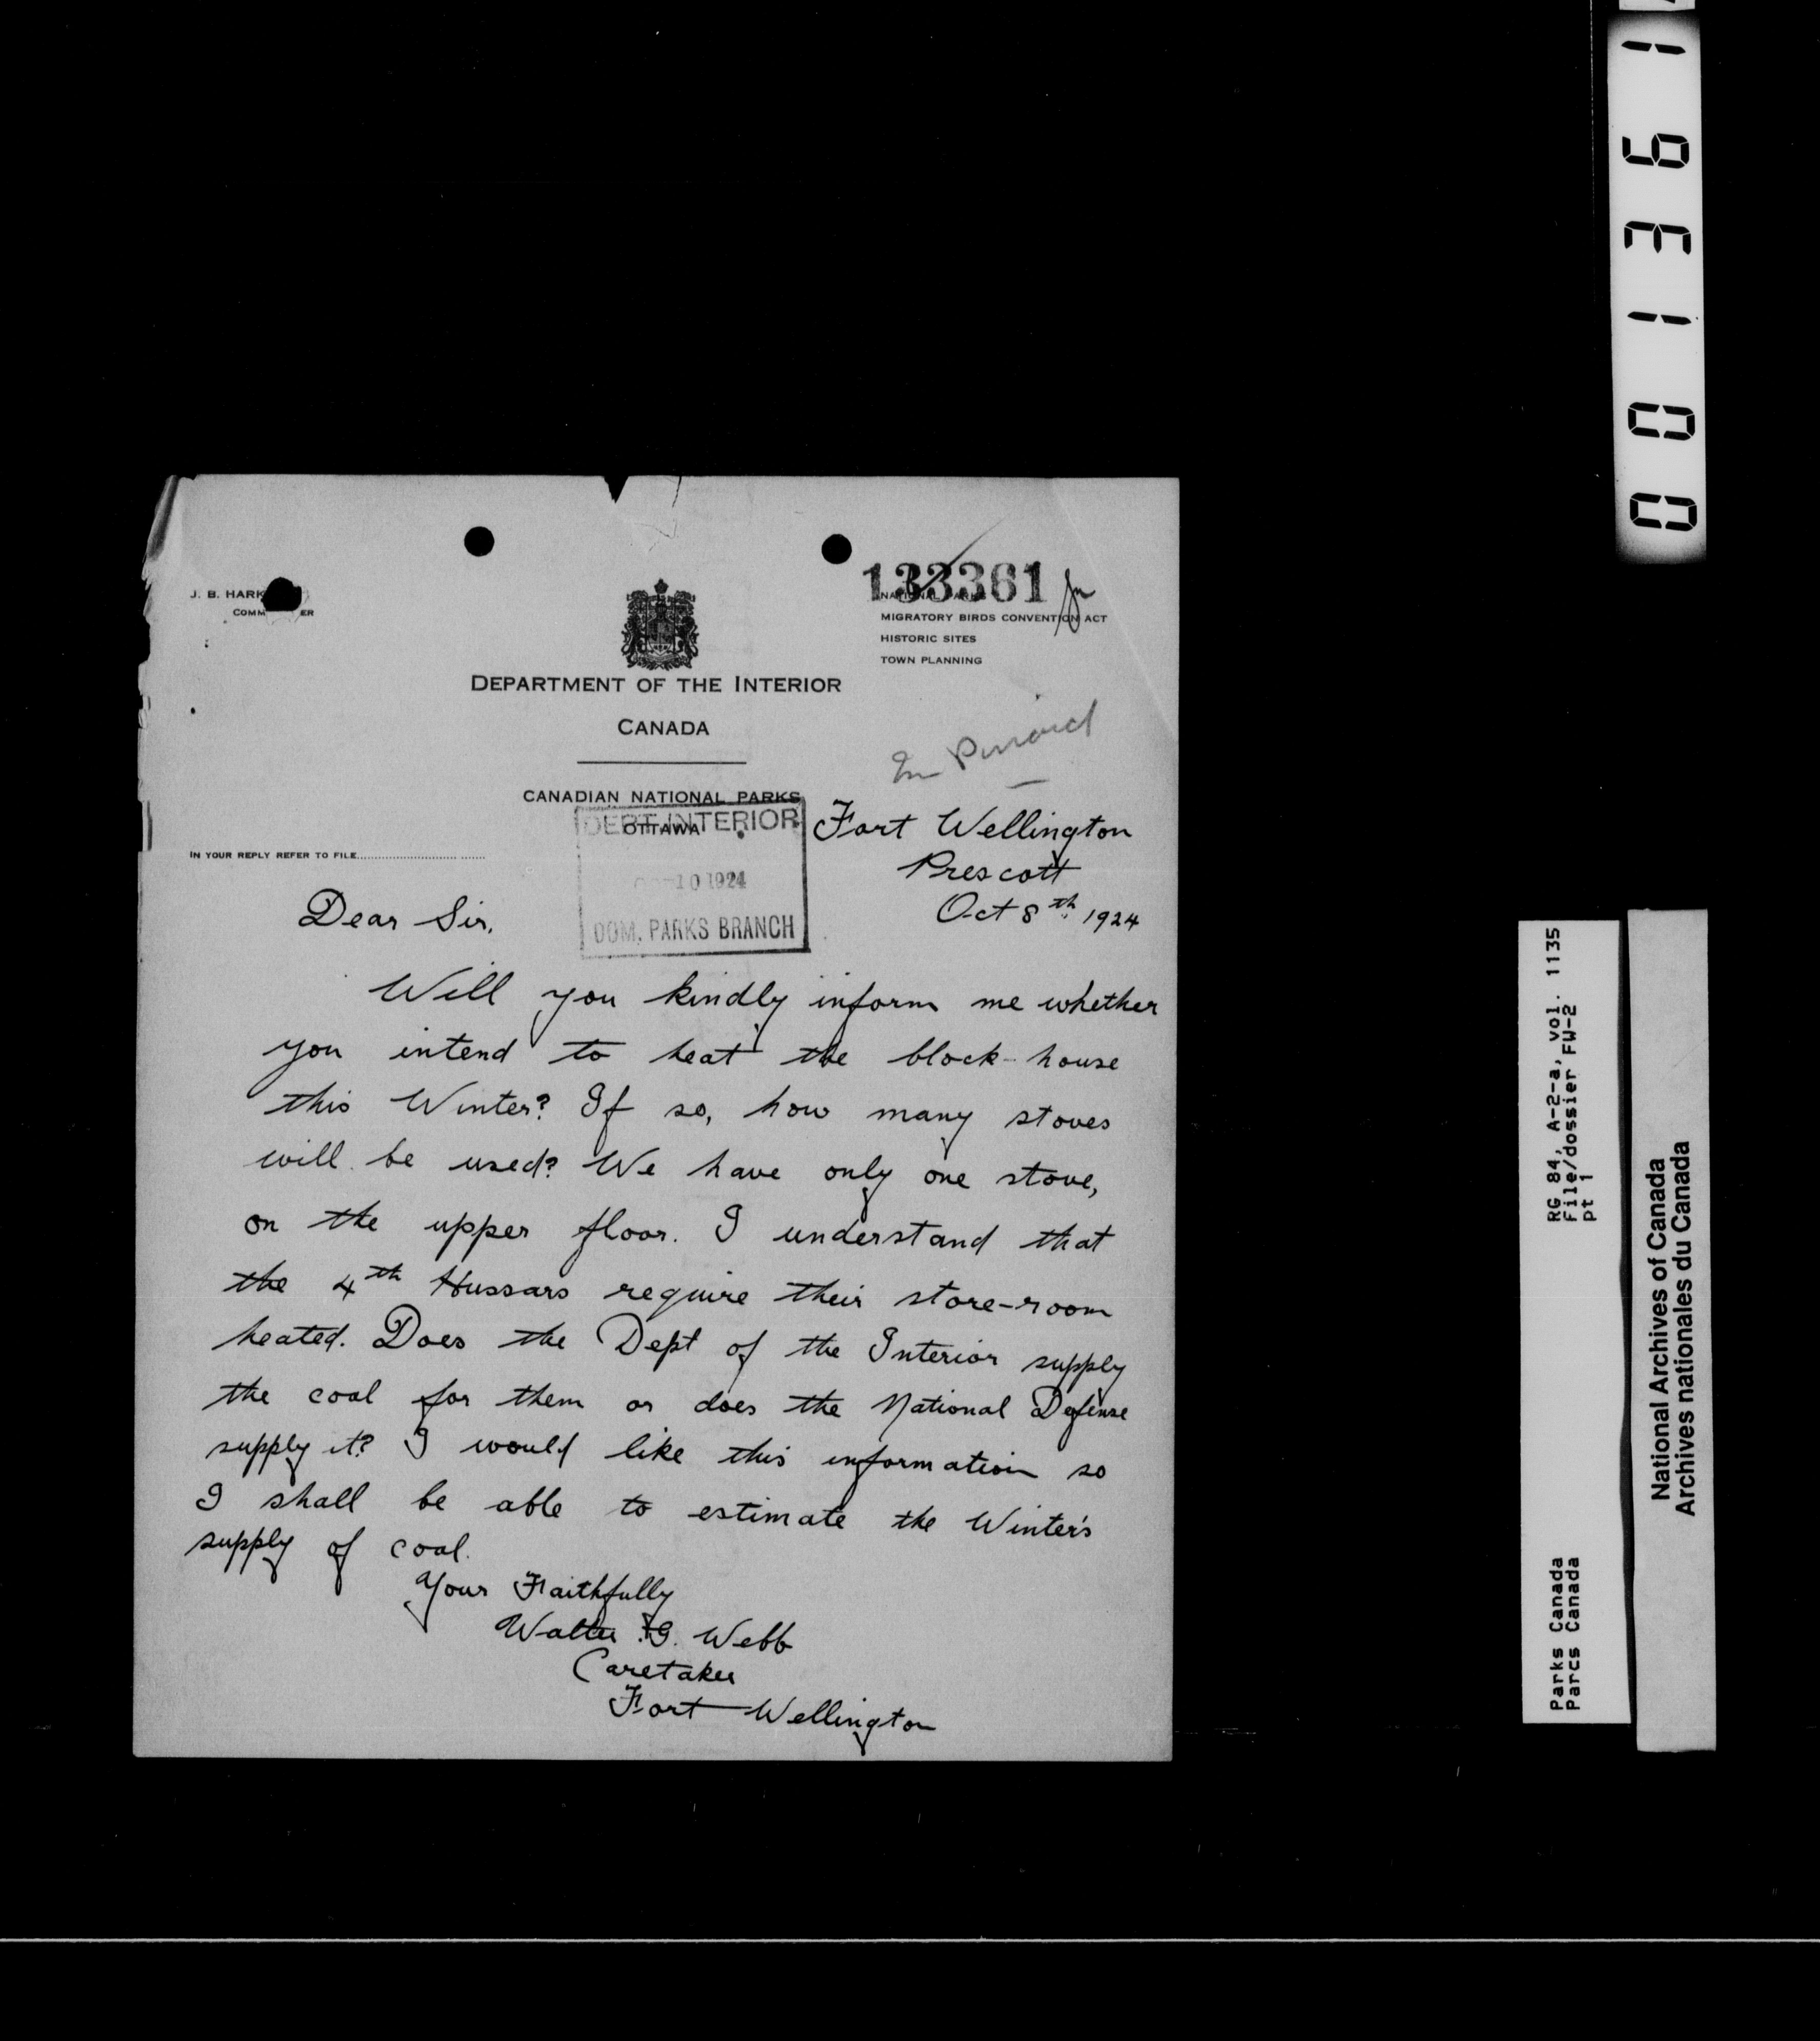 001361
J. B. HARK
COMM ER
133361
MIGRATORY BIRDS CONVENTION ACT
HISTORIC SITES
TOWN PLANNING
DEPARTMENT OF THE INTERIOR
CANADA
CANADIAN NATIONAL PARKS
OTTAWA
DEPT. INTERIOR
10 1924
DOM. PARKS BRANCH
IN YOUR REPLY REFER TO FILE
Fort Wellington
Prescott
Oct 8th 1924
Dear Sir,
Will you kindly inform me whether
you intend to heat the block-house
this Winter? If so, how many stoves
will be used? We have only one stove,
on the upper floor. I understand that
the 4th Hussars require their store-room
heated. Does the Dept of the Interior supply
the coal for them or does the National Defense
supply it? I would like this information so
I shall be able to estimate the Winter's
supply of coal.
Your Faithfully
Walter G. Webb
Caretaker
Fort Wellington
RG 84, A-2-a, vol. 1135
File/dossier FW-2
pt 1
Parks Canada
Parcs Canada
National Archives of Canada
Archives nationales du Canada